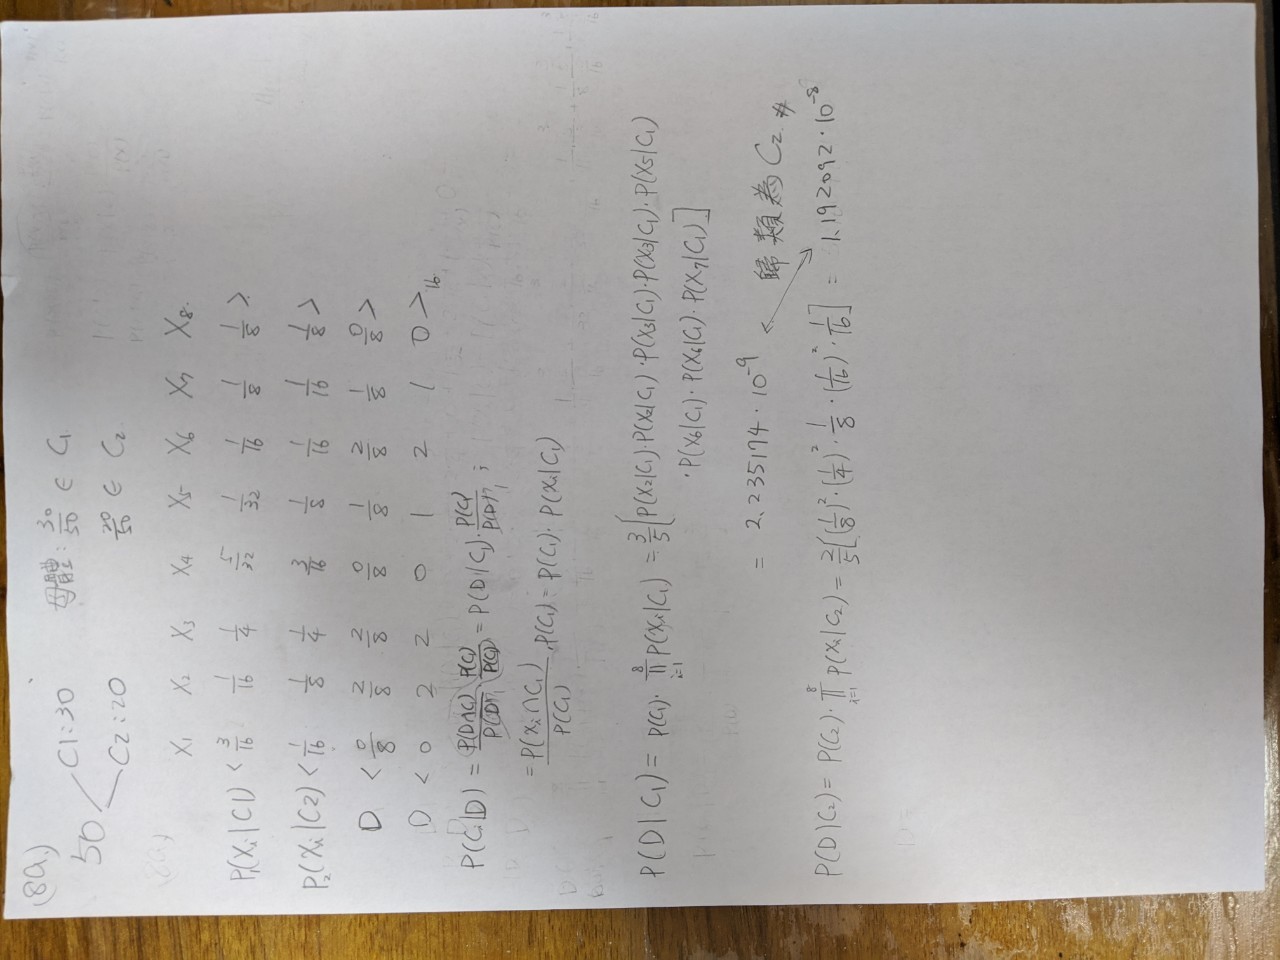 (8a.)
50 < C1:30
C2:20
母體: 30/50 ∈ C1
20/50 ∈ C2
X1 X2 X3 X4 X5 X6 X7 X8.
P1(Xi|C1) < 3/16 1/16 1/4 5/32 1/32 1/16 1/8 1/8 >
P2(Xi|C2) < 1/16 1/8 1/4 3/16 1/8 1/16 1/16 1/8 >
D < 0/8 2/8 2/8 0/8 1/8 2/8 1/8 0/8 >
D < 0 2 2 0 1 2 1 0 >
P(Ci|D) = P(D∩Ci)/P(D) · P(Ci)/P(Ci) = P(D|Ci) · P(Ci)/P(D) ;
= P(Xi∩C1)/P(C1) · P(C1) = P(C1) · P(Xi|C1)
P(D|C1) = P(C1) · 8∏i=1 P(Xi|C1) = 3/5 [P(X2|C1)·P(X2|C1)·P(X3|C1)·P(X3|C1)·P(X5|C1)
·P(X6|C1)·P(X6|C1)·P(X7|C1)]
= 2.235174·10^-9
歸類為 C2 #
P(D|C2) = P(C2) · 8∏i=1 P(Xi|C2) = 2/5 [(1/8)^2·(1/4)^2·1/8·(1/16)^2·1/16] = 1.192092·10^-8